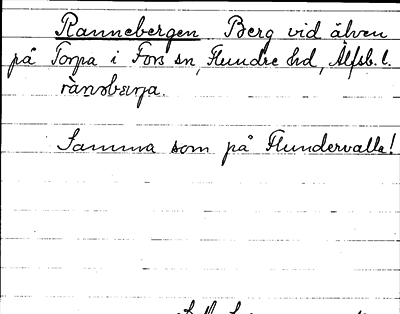 Rannebergen Berg vid älven
på Torpa i Fors sn, Flundre hd, Älfsb. l.
rànsbærja.
Samma som på Flundervalla!